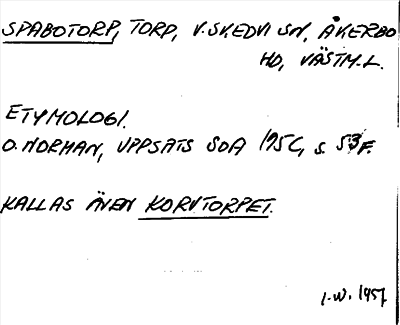 SPABOTORP, TORP, V. SKEDVI SN, ÅKERBO
HD, VÄSTM.L.
ETYMOLOGI.
O. NORMAN, UPPSATS SOA 1956, s. 53 F.
KALLAS ÄVEN KORVTORPET.
I.W. 1957